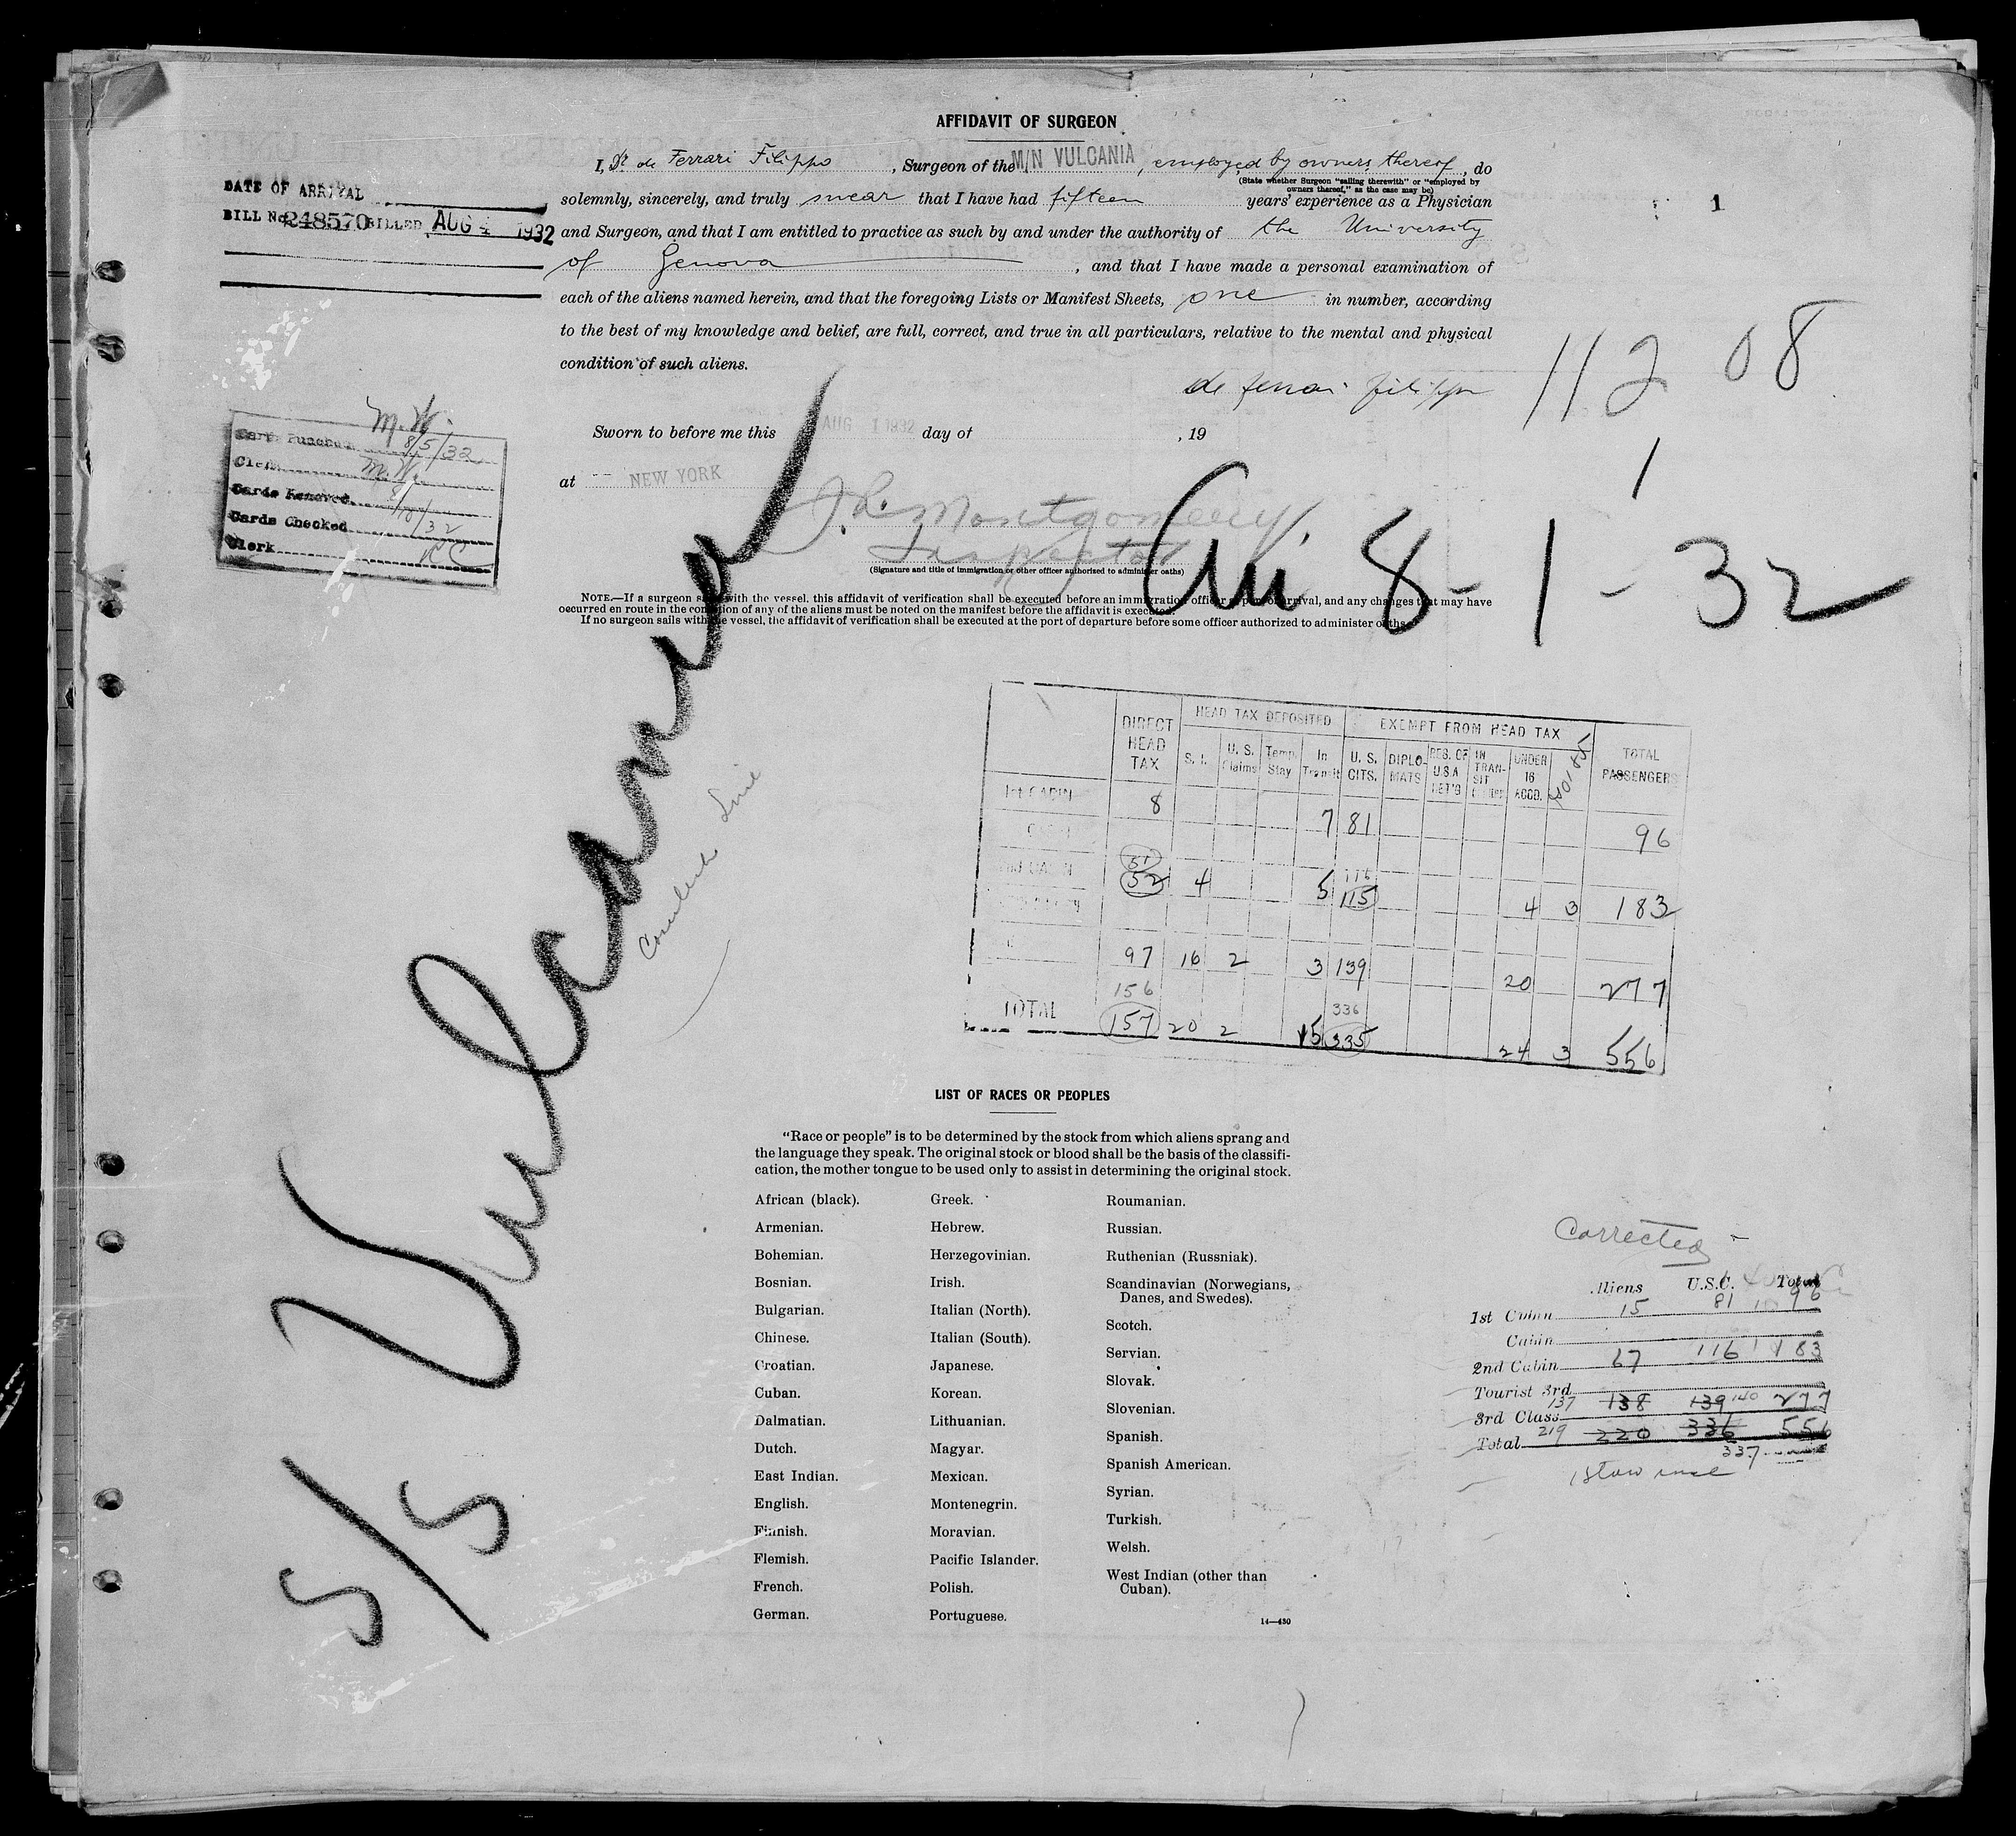 AFFIDAVIT OF SURGEON
I, Dr de Ferrari Filippo, Surgeon of the M/N VULCANIA, employed by owners thereof, do
(State whether Surgeon “sailing therewith” or “employed by
owners thereof,” as the case may be)
solemnly, sincerely, and truly swear that I have had fifteen years' experience as a Physician
and Surgeon, and that I am entitled to practice as such by and under the authority of the University
of Genova, and that I have made a personal examination of
each of the aliens named herein, and that the foregoing Lists or Manifest Sheets, one in number, according
to the best of my knowledge and belief, are full, correct, and true in all particulars, relative to the mental and physical
condition of such aliens.
de ferrari filippo
Sworn to before me this AUG 1 1932 day of , 19
at NEW YORK
Montgomery
Inspector
(Signature and title of immigration or other officer authorized to administer oaths)
NOTE.—If a surgeon sails with the vessel, this affidavit of verification shall be executed before an immigration officer at port of arrival, and any changes that may have
occurred en route in the condition of any of the aliens must be noted on the manifest before the affidavit is executed.
If no surgeon sails with the vessel, the affidavit of verification shall be executed at the port of departure before some officer authorized to administer oaths.
DATE OF ARRIVAL
BILL No. 248570 BILLED AUG 4 1932
1
11208
1
M.W.
Cards Punched 8/5/32
Clerk M.W.
Cards Removed 8/10/32
Cards Checked
Clerk KC
Arr 8-1-32
S/S Vulcania
Cosulich Line
DIRECT HEAD TAX
HEAD TAX DEPOSITED
EXEMPT FROM HEAD TAX
TOTAL PASSENGERS
S. I. U. S. Claims Temp. Stay In Transit U. S. CITS. DIPLOMATS RES. OF U.S.A RET'G IN TRANSIT UNDER 16 ACCD.
1st CABIN 8 7 81 96
CABIN
51 116
2nd CABIN 52 4 5 115 4 3 183
97 16 2 3 139 20 277
156 336
TOTAL 157 20 2 15 335 24 3 556
LIST OF RACES OR PEOPLES
“Race or people” is to be determined by the stock from which aliens sprang and
the language they speak. The original stock or blood shall be the basis of the classifi-
cation, the mother tongue to be used only to assist in determining the original stock.
African (black).
Armenian.
Bohemian.
Bosnian.
Bulgarian.
Chinese.
Croatian.
Cuban.
Dalmatian.
Dutch.
East Indian.
English.
Finnish.
Flemish.
French.
German.
Greek.
Hebrew.
Herzegovinian.
Irish.
Italian (North).
Italian (South).
Japanese.
Korean.
Lithuanian.
Magyar.
Mexican.
Montenegrin.
Moravian.
Pacific Islander.
Polish.
Portuguese.
Roumanian.
Russian.
Ruthenian (Russniak).
Scandinavian (Norwegians,
Danes, and Swedes).
Scotch.
Servian.
Slovak.
Slovenian.
Spanish.
Spanish American.
Syrian.
Turkish.
Welsh.
West Indian (other than
Cuban).
14—430
Corrected
Aliens U.S.C. Total
1st Cabin 15 81 96
Cabin
2nd Cabin 67 116 183
Tourist 3rd
3rd Class 137 138 139 140 277
Total 219 220 336 556
337
1 Stowaway